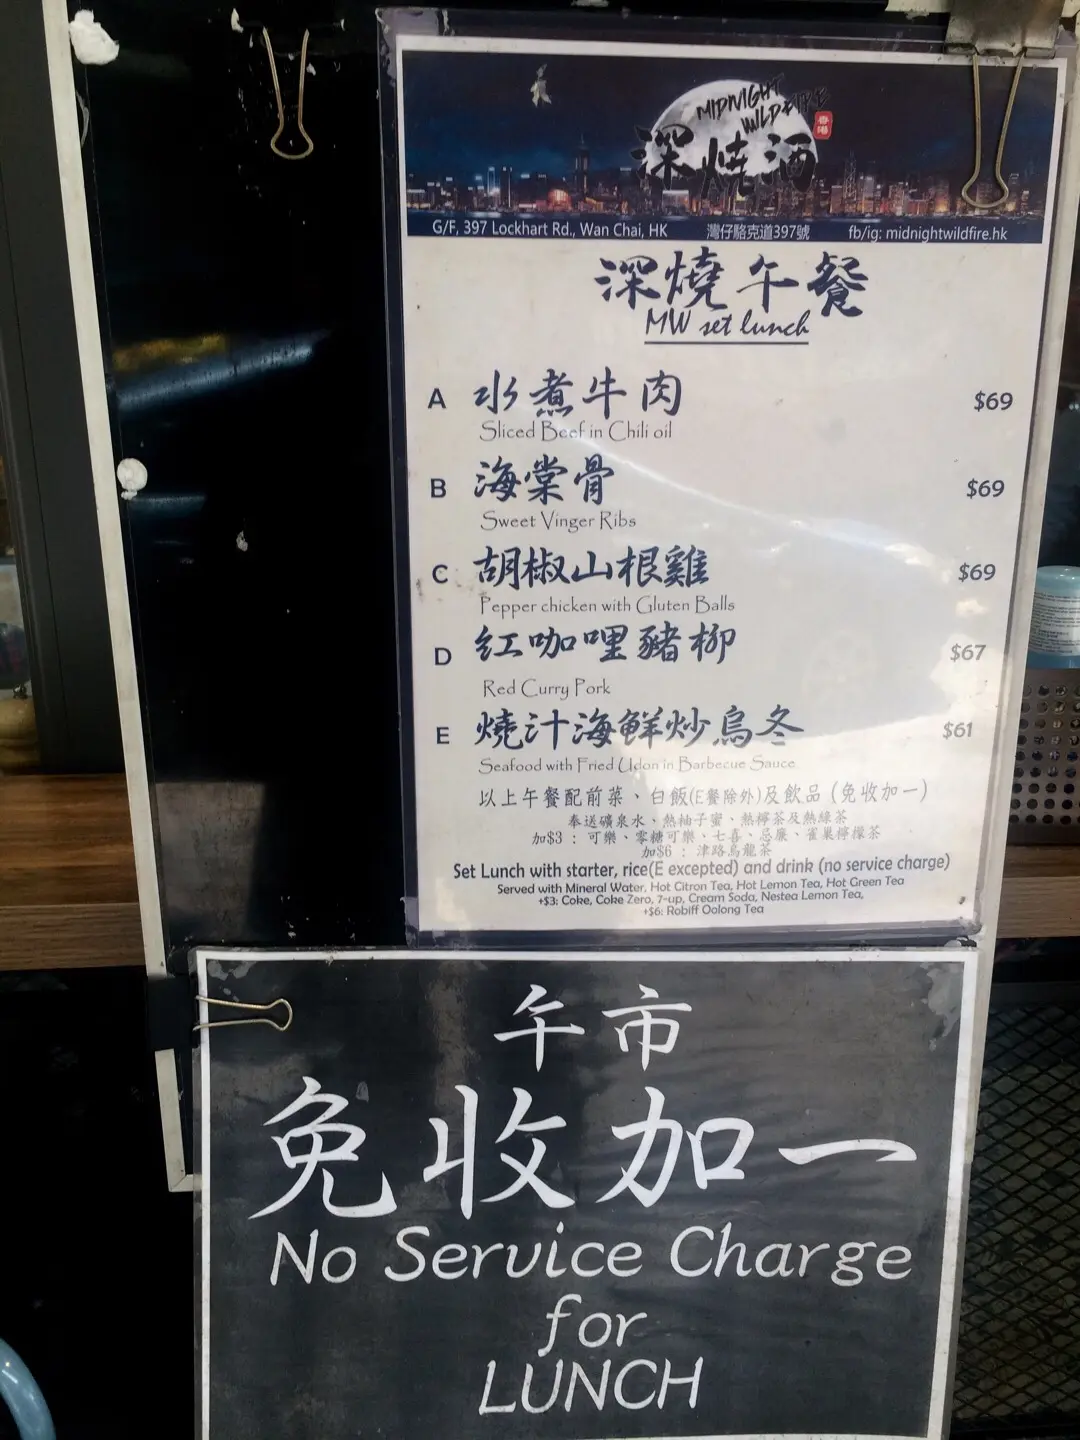 MIDNIGHT
WILDFIRE
深燒酒
香港
G/F, 397 Lockhart Rd., Wan Chai, HK 灣仔駱克道397號 fb/ig: midnightwildfire.hk
深燒午餐
MW set lunch
A 水煮牛肉 $69
Sliced Beef in Chili oil
B 海棠骨 $69
Sweet Vinger Ribs
C 胡椒山根雞 $69
Pepper chicken with Gluten Balls
D 紅咖哩豬柳 $67
Red Curry Pork
E 燒汁海鮮炒烏冬 $61
Seafood with Fried Udon in Barbecue Sauce
以上午餐配前菜、白飯(E餐除外)及飲品 (免收加一)
奉送礦泉水、熱柚子蜜、熱檸茶及熱綠茶
加$3 : 可樂、零糖可樂、七喜、忌廉、雀巢檸檬茶
加$6 : 津路烏龍茶
Set Lunch with starter, rice(E excepted) and drink (no service charge)
Served with Mineral Water, Hot Citron Tea, Hot Lemon Tea, Hot Green Tea
+$3: Coke, Coke Zero, 7-up, Cream Soda, Nestea Lemon Tea,
+$6: Robiff Oolong Tea
午市
免收加一
No Service Charge
for
LUNCH